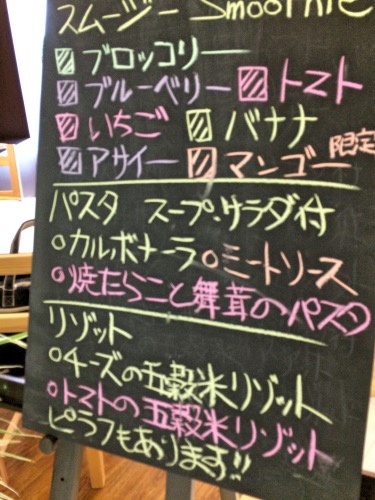 スムージー Smoothie
ブロッコリー
ブルーベリー トマト
いちご バナナ
アサイー マンゴー 限定
パスタ スープ・サラダ付
○カルボナーラ ○ミートソース
○焼たらこと舞茸のパスタ
リゾット
○チーズの五穀米リゾット
○トマトの五穀米リゾット
ピラフもあります!!